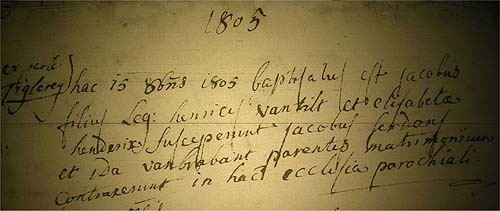 1805
ex parte
Tiglerey
hac 15 8bris 1805 baptisatus est jacobus
filius Leg: henrici vantilt et elisabetæ
hendrix Susceperunt jacobus serdons
et ida vanbrabant parentes matrimonium
Contraxerunt in hac ecclesia parochiali